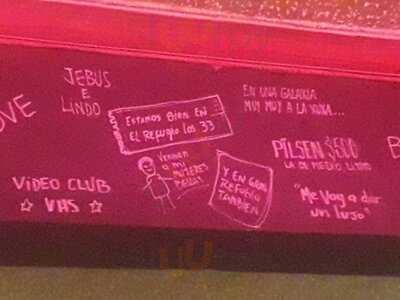 JEBUS
E
LINDO
EN UNA GALAXIA
MUY MUY A LA
OVE
ESTAMOS BIEN EN
EL REFUGIO LOS 33
PILSEN $500
LA DE MEDIO LITRO
MI
MUJERES
Y EN GRAL
REFUGIO
TAMBIEN
VIDEO CLUB
☆ VHS ☆
"Me voy a dar
un lujo"
B